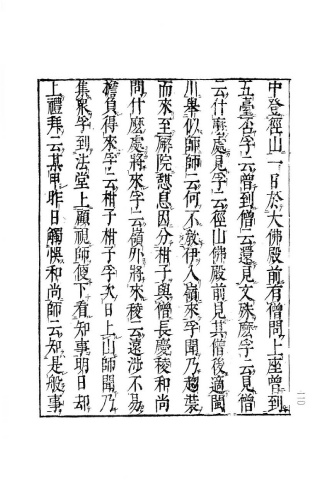 中登徑山一日於大佛殿前有僧問上座曾到
五臺否孚云曾到僧云還見文殊麽孚云見僧
云什麽處見孚云徑山佛殿前見其僧後適閩
川舉似師師云何不敎伊入嶺來孚聞乃趨裝
而來至廨院憩息因分柑子與僧長慶稜和尚
問什麽處將來孚云嶺外將來稜云遠涉不易
擔負得來孚云柑子柑子孚次日上山師聞乃
集衆孚到法堂上顧視師便下看知事明日却
上禮拜云某甲昨日觸悞和尚師云知是般事
一一〇